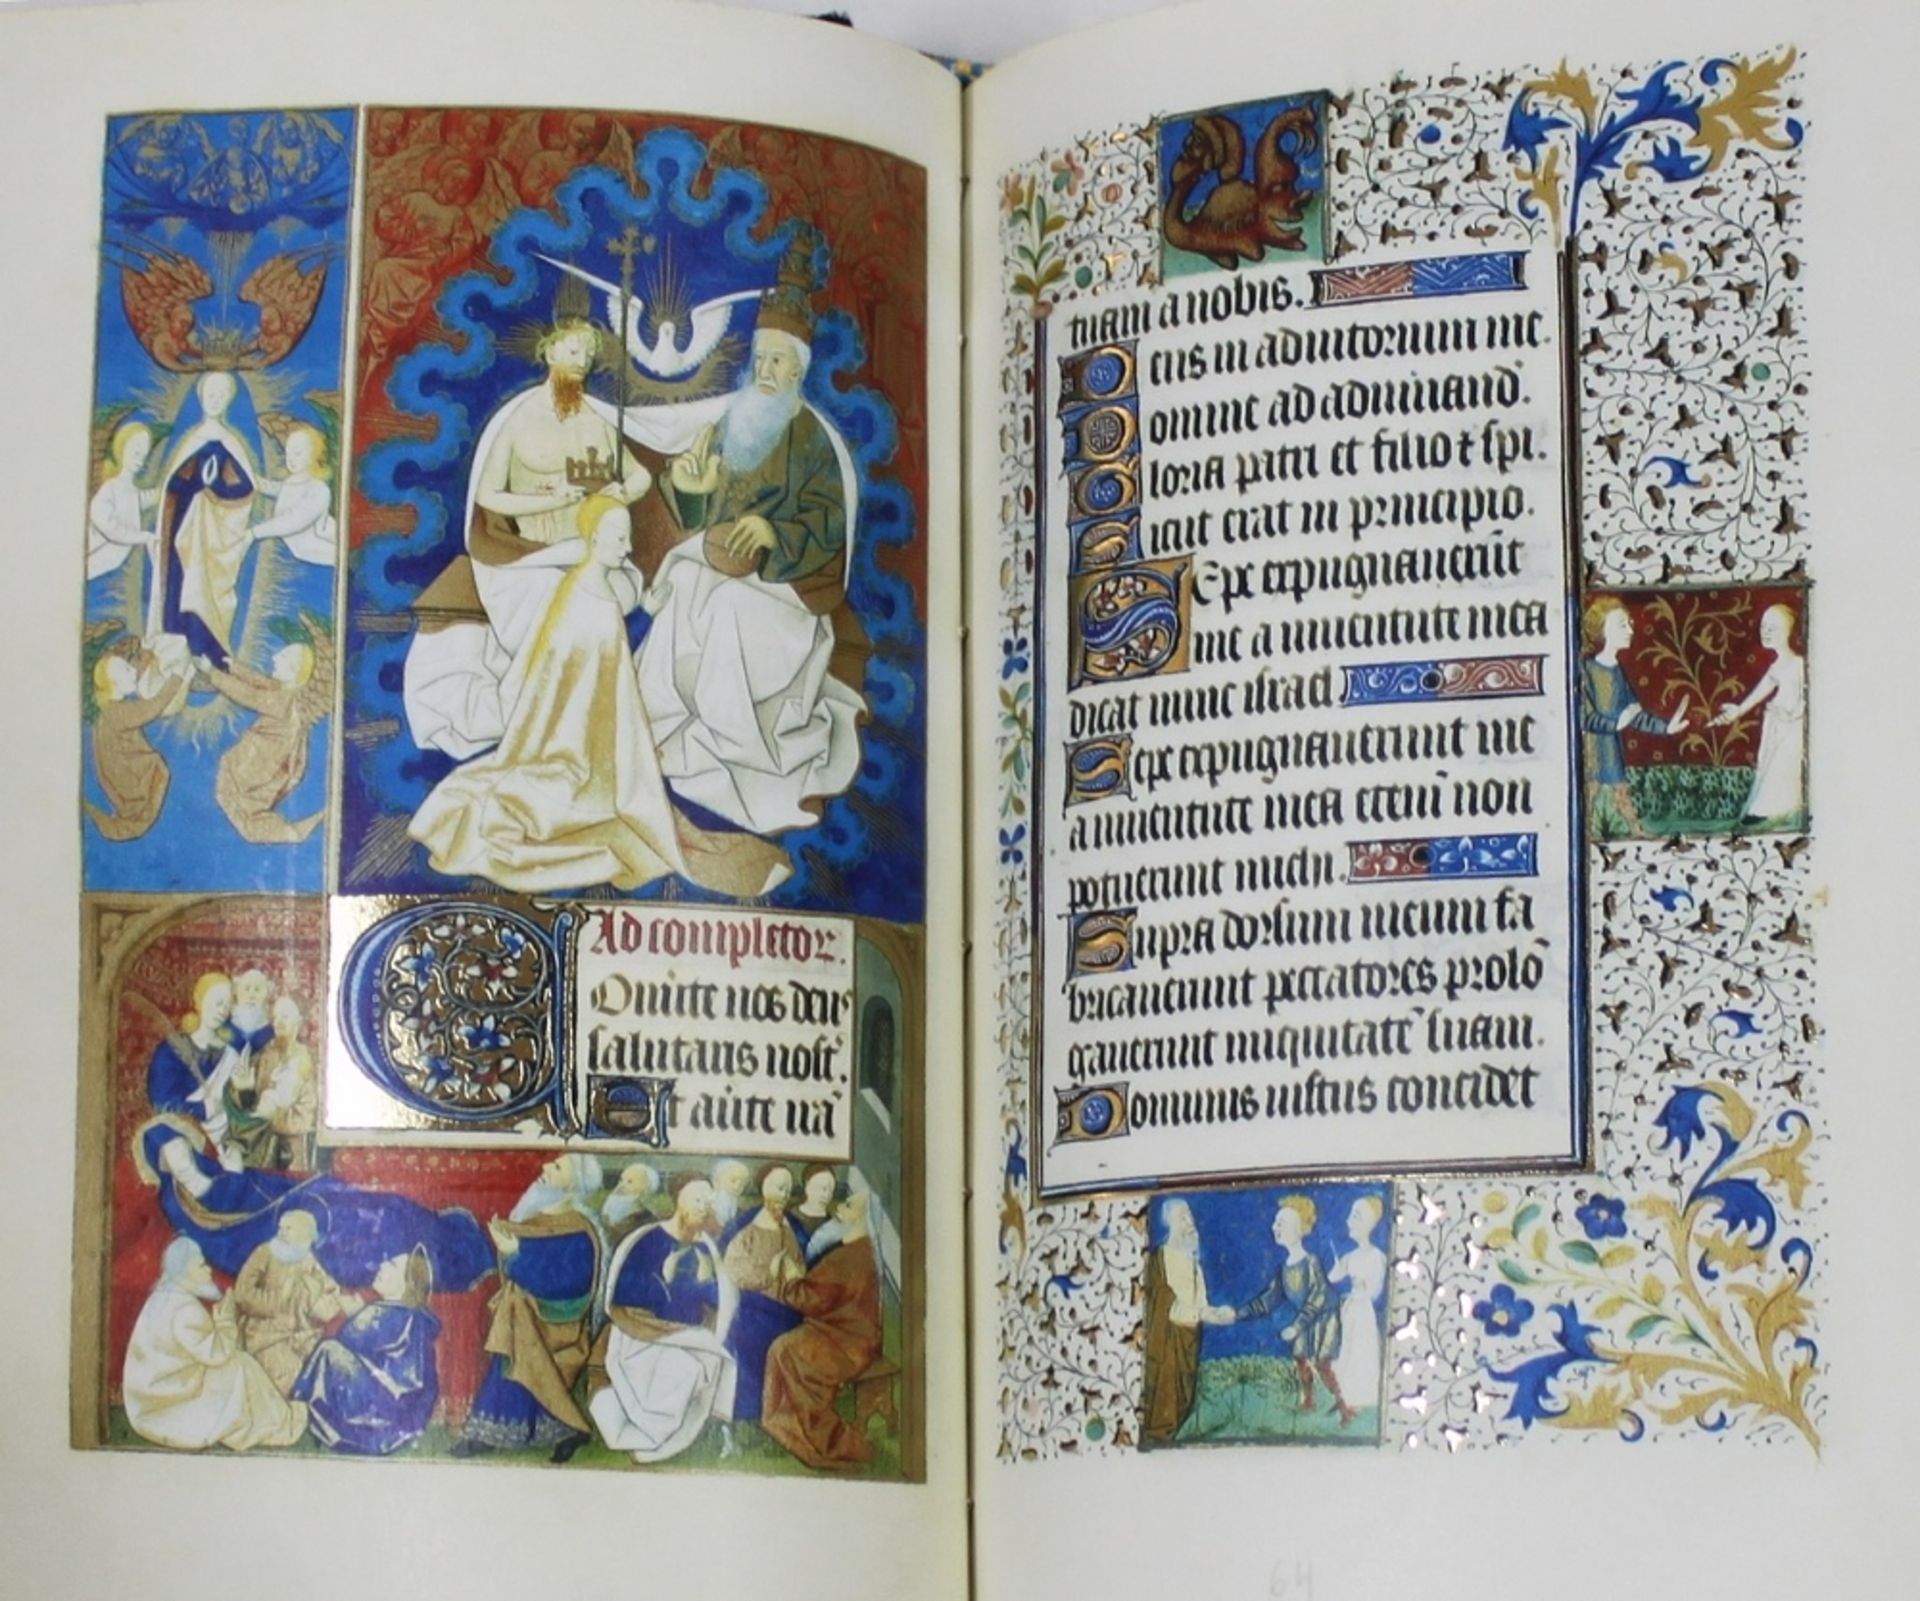 Ad completor.
Onůte nos deus
salutaris nost̄.
Et aůte nā
tuam a nobis.
Deus in adiutorium me
Domine ad adiuuand̄.
Gloria patri et filio ⁊ spi.
Sicut erat in principio.
Sepe expugnauerūt
me a iuuentute mea
dicat nunc israel
Sepe expugnauerunt me
a iuuentute mea etenī non
potuerunt michi.
Supra dorsum meum fa
bricauerunt peccatores prolō
gauerunt iniquitatē suam.
Dominus iustus concidet
64